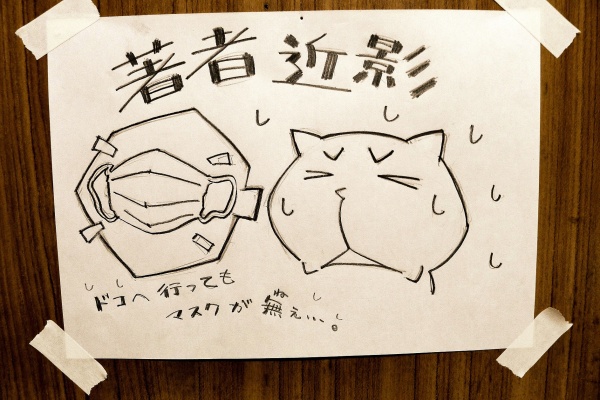 著者近影
ドコへ行っても
マスクが無ぇ…。
ね